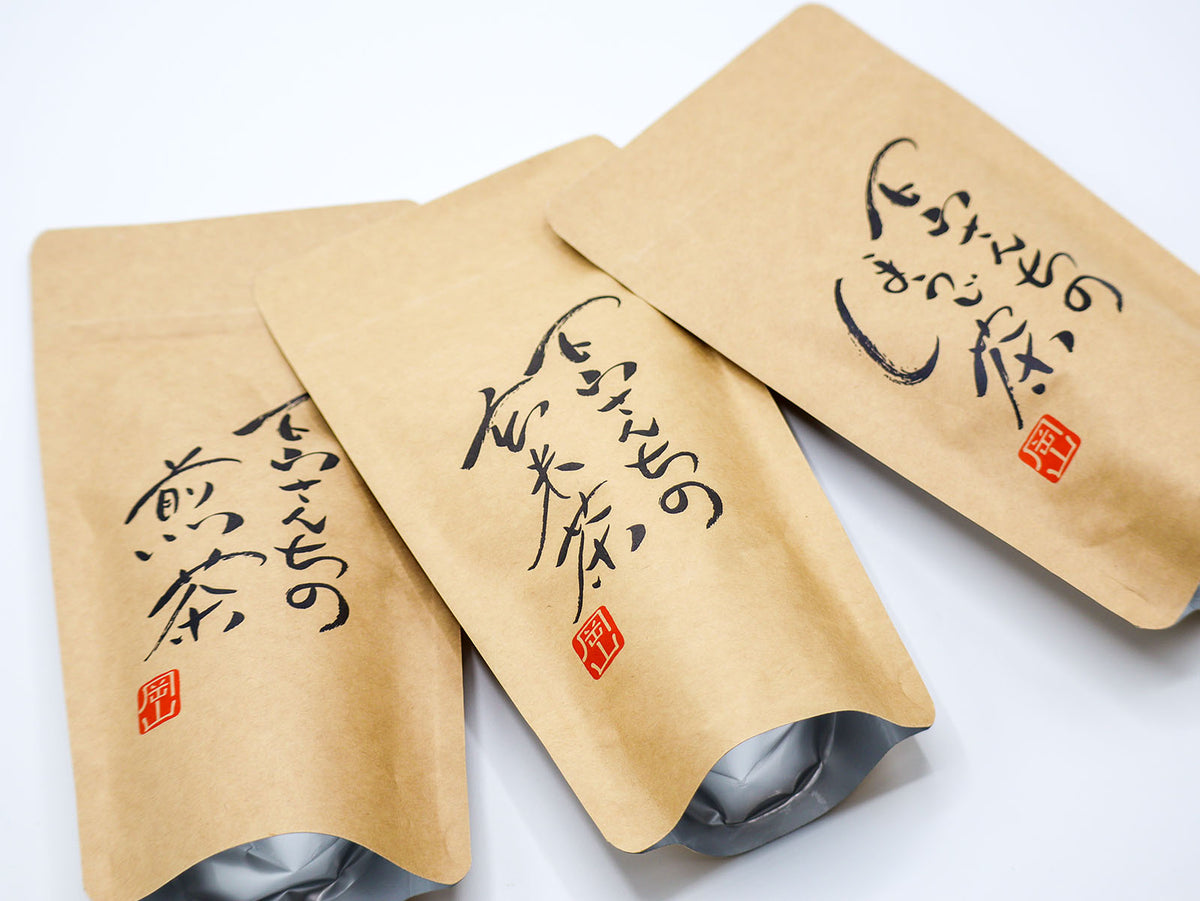 岡山さんちの
煎茶
岡山
岡山さんちの
玄米茶
岡山
岡山さんちの
ほうじ茶
岡山